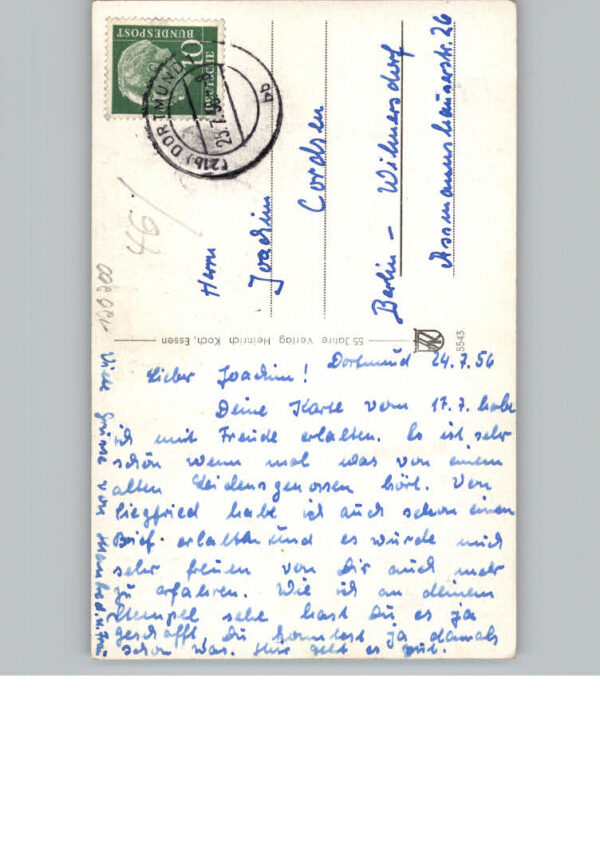 DEUTSCHE
BUNDESPOST
10
(21b) DORTMUND
25.7.56
bb
Herrn
Joachim
Cordsen
Berlin - Wilmersdorf
Assmannshauserstr. 26
55 Jahre Verlag Heinrich Koch, Essen
5543
Dortmund 24.7.56
Lieber Joachim!
Deine Karte vom 17.7. habe
ich mit Freude erhalten. Es ist sehr
schön wenn mal was von einem
alten Leidensgenossen hört. Von
Siegfried habe ich auch schon einen
Brief erhalten und es würde mich
sehr freuen von Dir auch mehr
zu erfahren. Wie ich an deinem
Stempel sehe hast Du es ja
geschafft, Du konntest ja damals
schon was. Mir geht es gut.
Viele Grüsse von